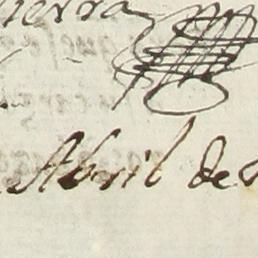 ierra
Abril de